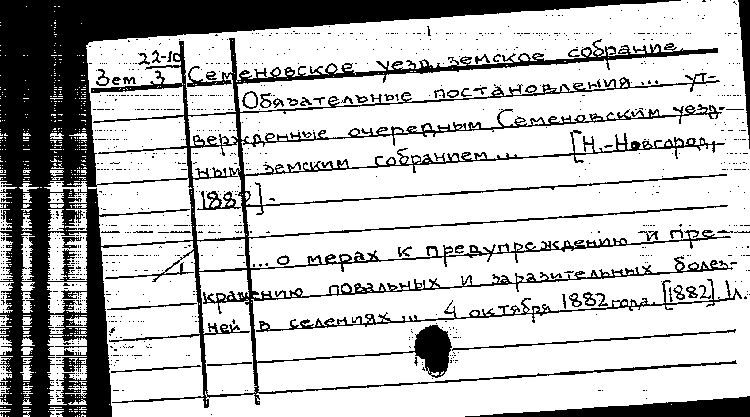 22-10
Зем 3 Семеновское уезд. земское собрание.
Обязательные постановления... ут-
вержденные очередным Семеновским уезд-
ным земским собранием... [Н.-Новгород,
1882].
1 ... о мерах к предупреждению и пре-
кращению повальных и заразительных болез-
ней в селениях... 4 октября 1882 года. [1882]. 1 л.